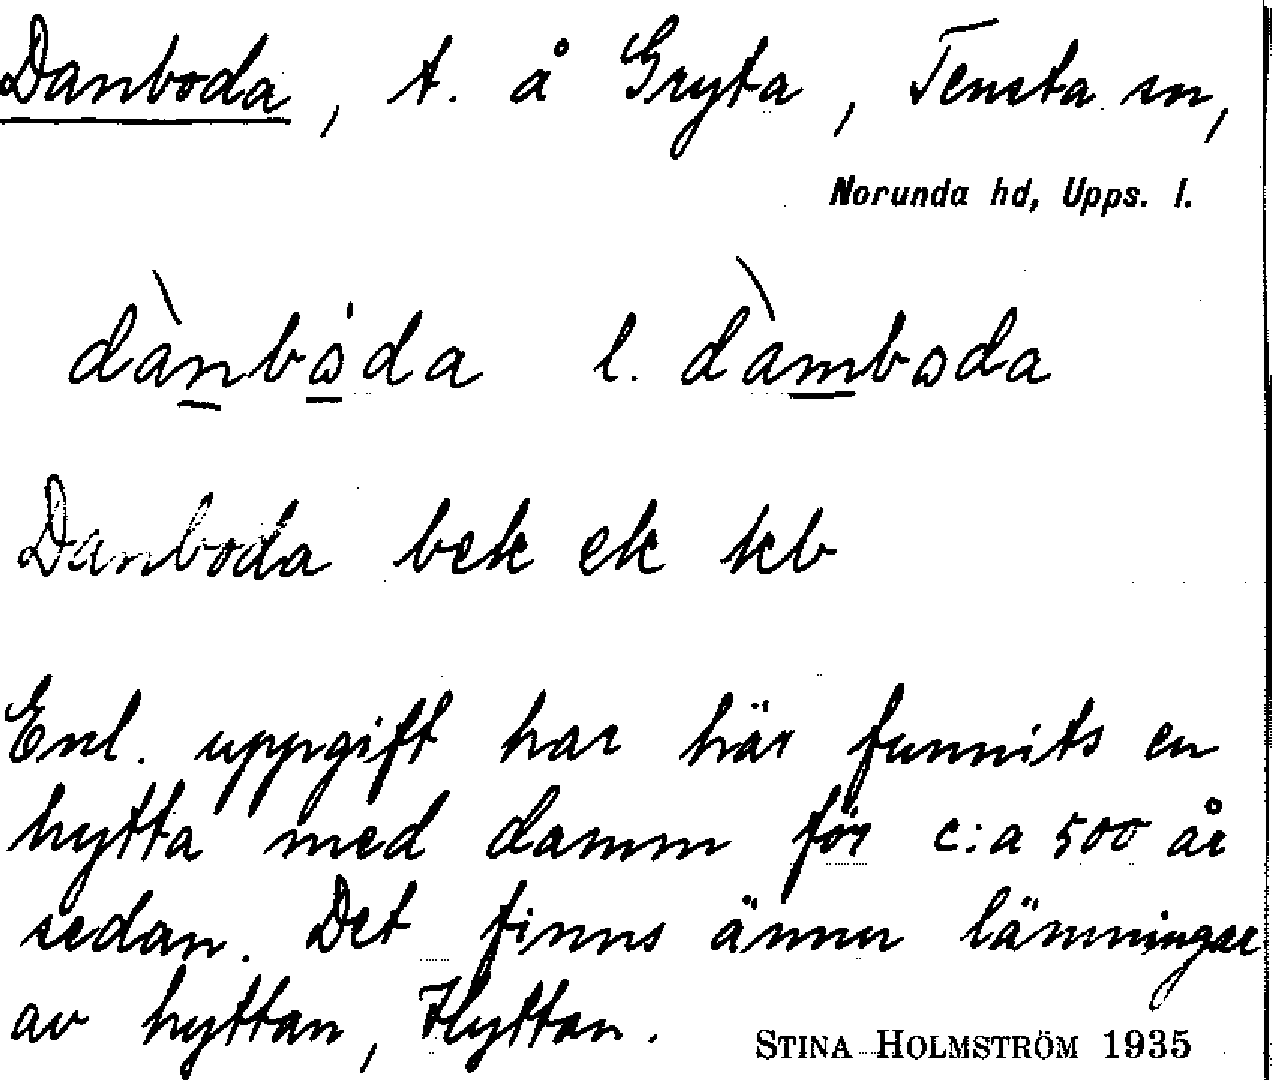 Danboda, t. å Gryta, Tensta sn,
Norunda hd, Upps. l.
dànbåda l. dàmbωda
Danboda bek ek kb
Enl. uppgift har här funnits en
hytta med damm för c:a 500 år
sedan. Det finns ännu lämningar
av hyttan, Hyttan.
STINA HOLMSTRÖM 1935